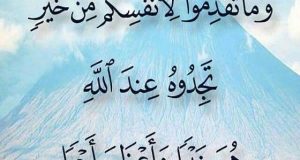 وَمَا تُقَدِّمُوا لِأَنفُسِكُم مِّنْ خَيْرٍ
تَجِدُوهُ عِندَ اللَّهِ
هُوَ خَيْرًا وَأَعْظَمَ أَجْرًا